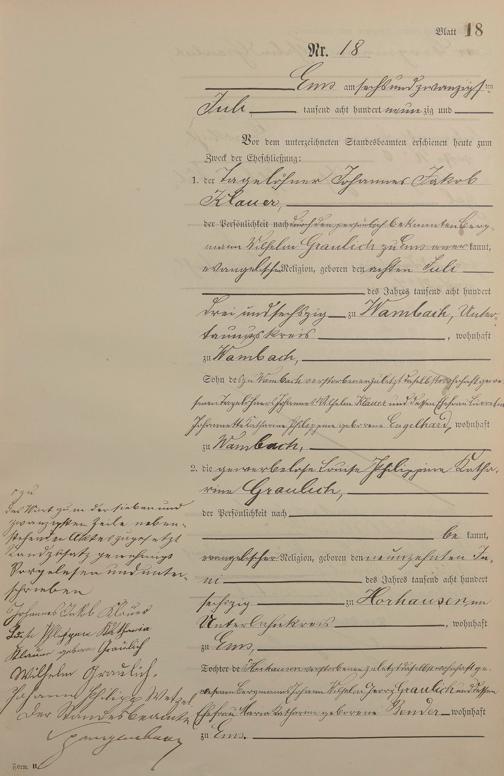 Blatt 18
Nr. 18
Ems am sechsundzwanzigsten
Juli tausend acht hundert neunzig und
Vor dem unterzeichneten Standesbeamten erschienen heute zum
Zweck der Eheschließung:
1. der Tagelöhner Johannes Jakob
Klauer,
der Persönlichkeit nach durch den persönlich bekannten Berg-
mann Wilhelm Graulich zu Ems anerkannt,
evangelischer Religion, geboren den achten Juli
des Jahres tausend acht hundert
drei und sechszig zu Wambach, Unter-
taunuskreis, wohnhaft
zu Wambach,
Sohn des zu Wambach verstorbenen zuletzt daselbst wohnhaft gewe-
senen Tagelöhners Johannes Wilhelm Klauer und dessen Ehefrau
Johannette Katharine Philippine geborene Engelhard, wohnhaft
zu Wambach,
2. die gewerbelose Louise Philippine Katha-
rine Graulich,
der Persönlichkeit nach
be kannt,
evangelischer Religion, geboren den neunzehnten Ju-
ni des Jahres tausend acht hundert
sechszig zu Horhausen, im
Unterlahnkreis, wohnhaft
zu Ems,
Tochter des zu Horhausen verstorbenen zuletzt daselbst wohnhaft ge-
wesenen Bergmanns Johann Wilhelm Georg Graulich und dessen
Ehefrau Maria Katharine geborene Bender wohnhaft
zu Ems.
"zu"
Das Wort zu in der sieben und
zwanzigsten Zeile neben-
stehenden Aktes zugesetzt
Randzusatz genehmigt
Vorgelesen und unter-
schrieben
Johannes Jakob Klauer
Philippine Katharina
Klauer geborne Graulich
Wilhelm Graulich.
Johann Philipp Wetzel
Der Standesbeamte
Form. B.